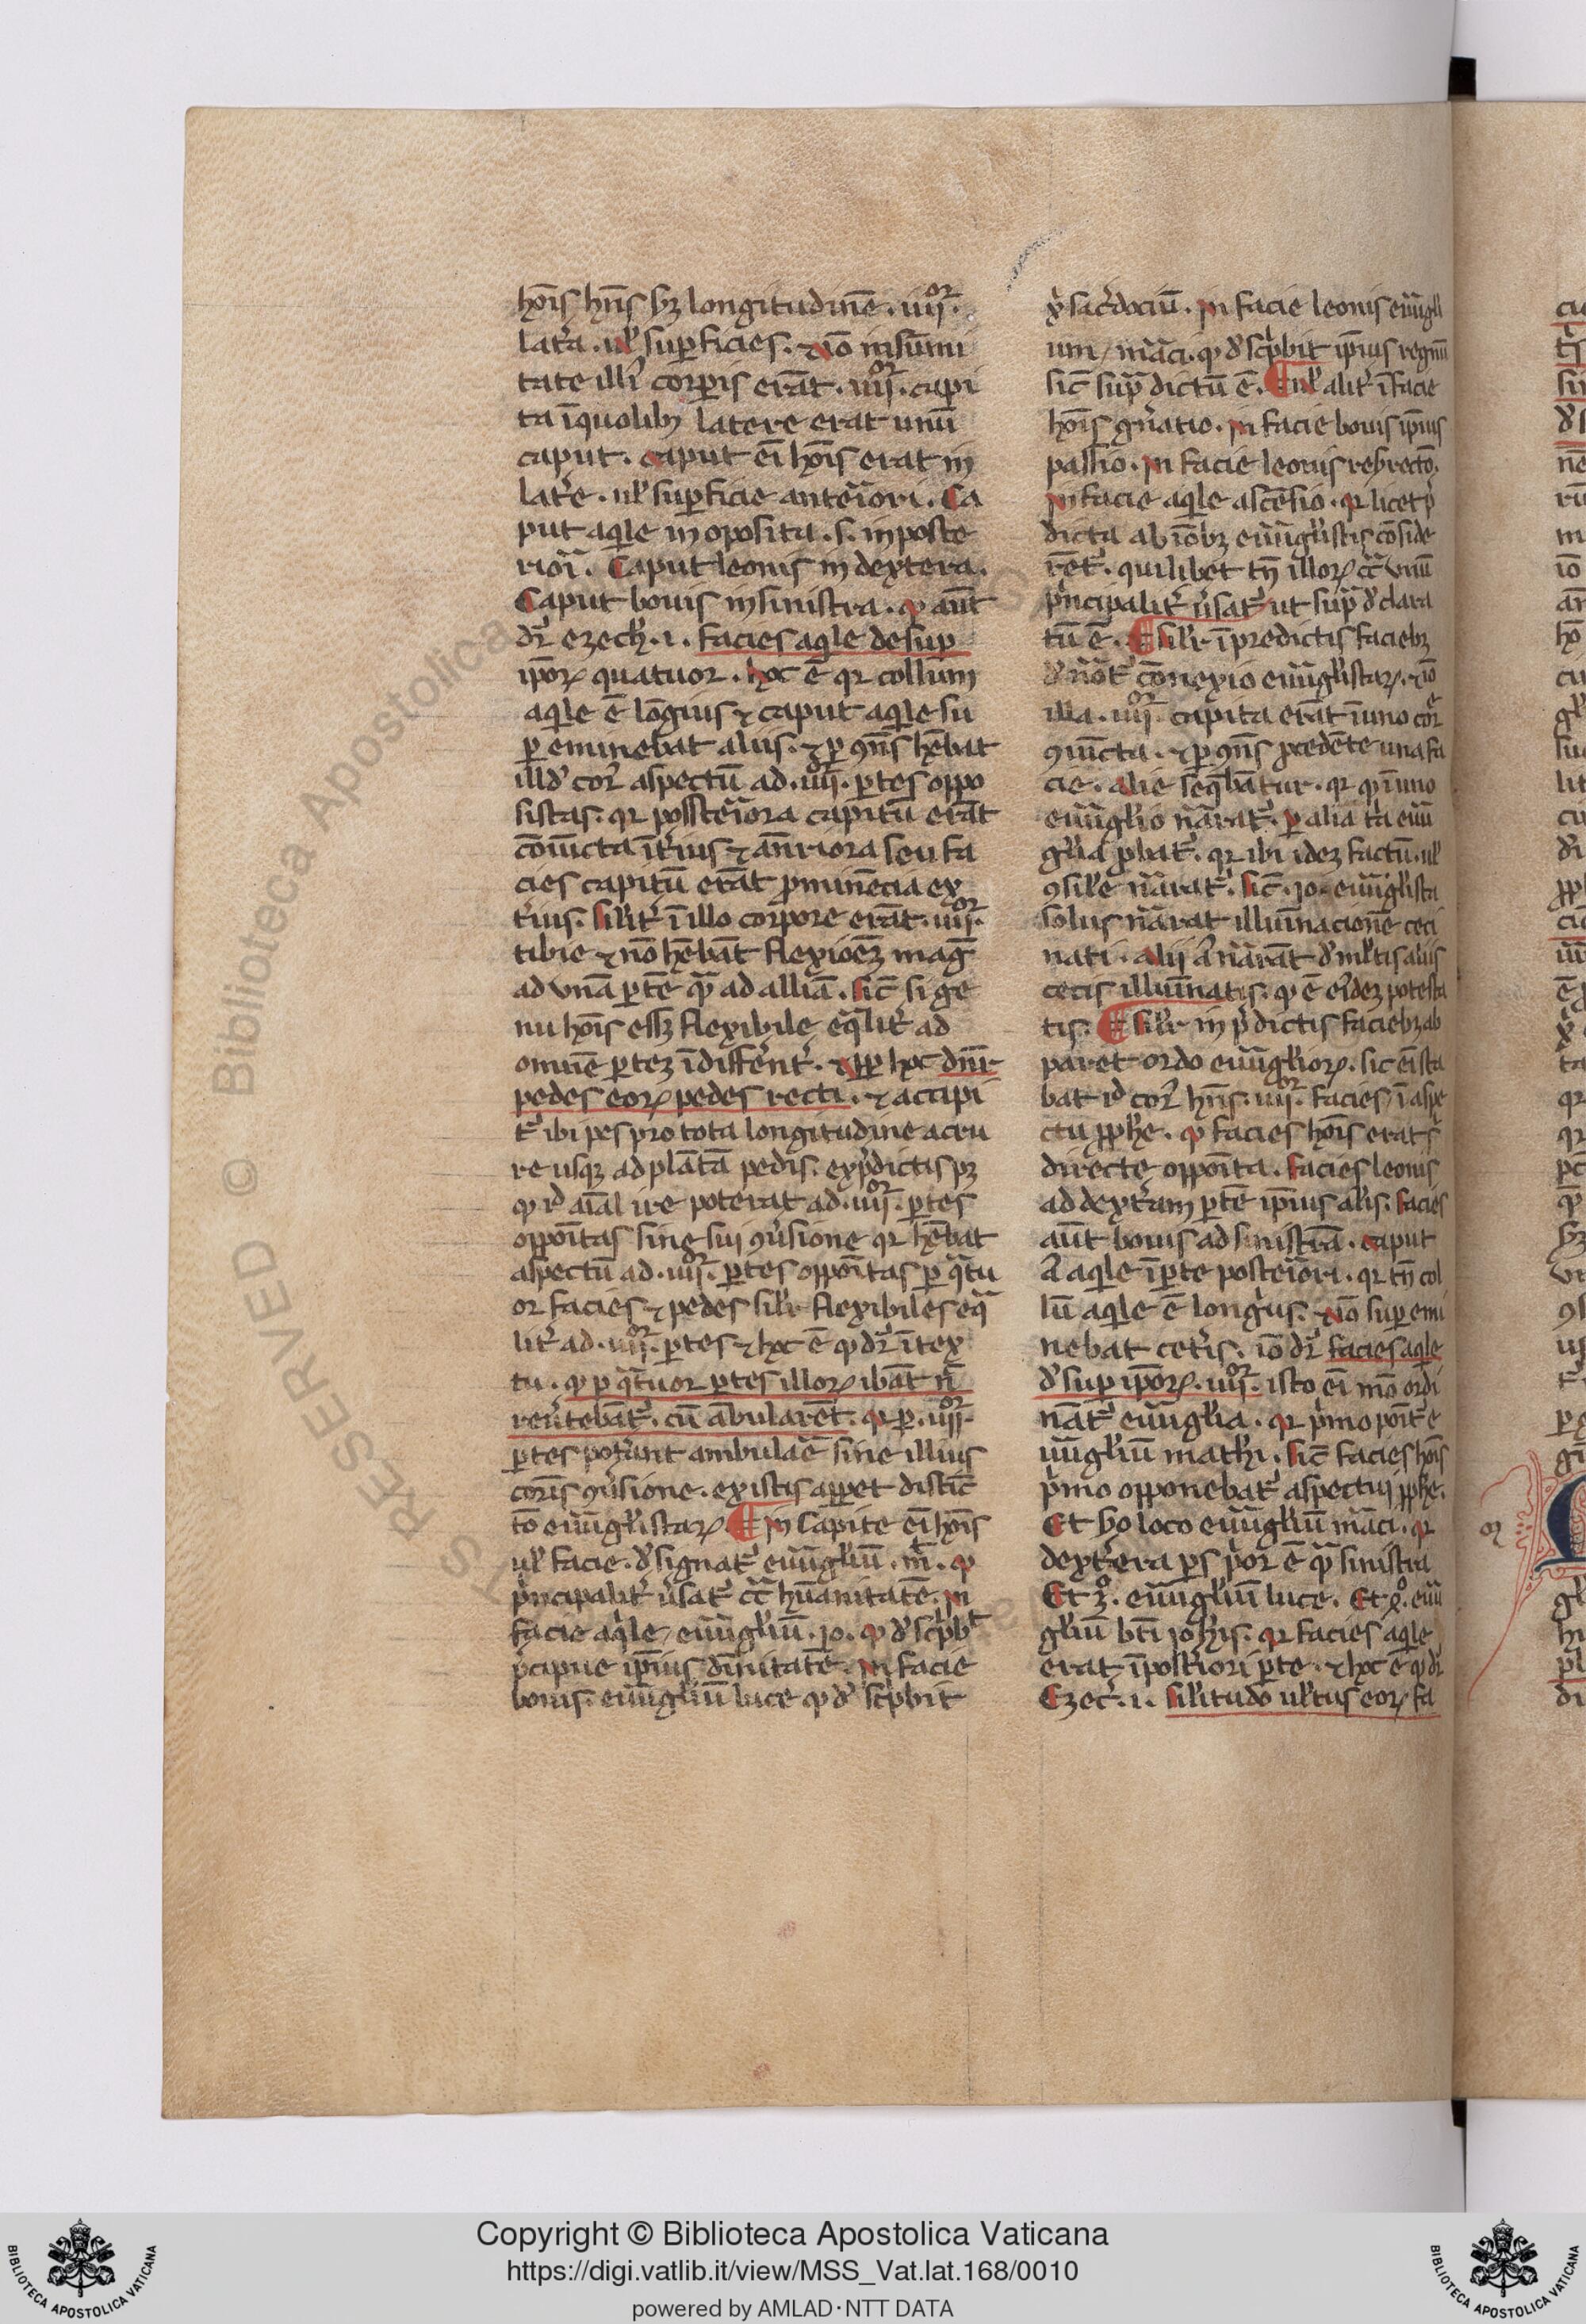 hoı̄s hn̄s sʒ longitudinē . iiij^or .
lat͛a . ul̕ superficies . ⁊ iō in sūmi
tate illi᷒ corꝑis erāt . iiij^or . capi
ta ī quolibʒ latere erat unū
caput . caput eī hoı̄s erat in
lat͛e . ul̕ superficie anteriori . Ca
put aqͥle in oposita . s . in poste
riori . Caput leonis in dextera .
Caput bouis in sinistra . ꝙ aūt
dr̄ ezech̕ . i . facies aqͥle desuꝑ
ip̄oꝝ quatuor . hoc ē qꝛ collum
aqͥle ē longius ⁊ caput aqͥle su
ꝑ eminebat aliis . ⁊ ꝑ ꝯn̄s hēbat
illđ cor᷒ aspectū ad . iiij^or . ꝑtes oppo
sistas . qꝛ possteriora capitū erāt
cōiūcta īt͛ius ⁊ ant͛riora seu fa
cies capitū erāt ꝓminēcia ex
t͛ius . silit͛ ī illo corpore erāt . iiij^or .
tibie ⁊ nō hēbāt flexioēʒ maḡ
ad vnā ꝑtē qͣ ad alliā . sic̄ si ge
nu hoı̄s essʒ flexibile eqͣlit͛ ad
omnē ꝑteʒ īdiffēnt͛ . ⁊ ꝓp hoc dn̄r
pedes eoꝝ pedes recti . ⁊ accipi
t᷑ ibi pes pro tota longitudine a cru
re usqʒ ad plātā pedis . ex p̄dictis pʒ
ꝙ iđ aīal ire poterat ad . iiij^or . ꝑtes
oppōitas sine sui ꝯuersione qꝛ hēbat
aspectū ad . iiij^or . ꝑtes oppōitas ꝑ qͣtu
or facies ⁊ pedes silr̄ flexibiles eqͣ
lit͛ ad . iiij^or . ꝑtes ⁊ hoc ē ꝙ dr̄ ī tex
tu . ꝙ ꝑ qͣtuor ꝑtes illoꝝ ibāt n̄
reuertebāt᷑ . cū ābularēt . qꝛ ꝑ . iiij^or .
ꝑtes poterant ambulare sine illius
corꝑis ꝯuersione . ex istis apparet distīc
tō euāgl̕istaꝝ ¶ In capite eī hoı̄s
ul̕ facie . đsignat᷑ euāgl̕iū . mt̄ . ꝙ
pͥncipalit͛ u͛sat᷑ cͣ hūanitatē . in
facie aqͥle / euāgl̕iū . Jo . ꝙ đscͥbit
p̄cipue ip̄ius diuinitatē . in facie
bouis . euāgl̕iū luce ꝙ đ scͥbit
xͥ sac͛dociū . in facie leonis euāgl̕i
um / marci . ꝙ đscͥbit ip̄ius regnū
sic̄ supͣ dictū ē . ¶ ul̕ alit͛ ī facie
hoı̄s gn̄atio . in facie bouis ip̄ius
passio . in facie leonis resrectō .
in facie aqͥle ascēsio . qꝛ licet p̄
dicta ab oībʒ euāgl̕istis cōside
rēt᷑ . quilibet tn̄ illoꝝ cͣ vnū
pͥncipalit͛ u͛sat᷑ ut supͣ đclara
tū ē . ¶ silr̄ ī predictis faciebʒ
đnōt᷑ cōnexio euāgl̕istaꝝ . ⁊ iō
illa . iiij^or . capita erāt ī uno cor͛e
ꝯiūcta . ⁊ ꝑ ꝯn̄s ꝓcedēte una fa
cie . alie seqͣbātur . qꝛ ꝙ ī uno
euāgl̕io nārat᷑ . ꝑ alia t͛a euā
gl̕ia ꝓbat᷑ . qꝛ ibi ideʒ factū . ul̕
ꝯsile nārat᷑ . sic̄ . Jo . euāgl̕ista
solus nārat illuīnacionē ceci
nati . alij āt nārāt đ ml̕tis aliis
cecis illuīnatis . ꝙ ē eiđeʒ potesta
tis . ¶ silr̄ in p̄dictis faciebʒ ap
paret ordo euāgl̕ioꝝ . sic eī sta
bat iđ cor᷒ hn̄s . iiij^or . facies / ī aspe
ctu ꝓph̕e . ꝙ facies hoı̄s erat s̄
directe oppōita . facies leonis
ad dext͛am ꝑtē ip̄ius al̕is . facies
aūt bouis ad sinistrā . caput
āt aqͥle ī ꝑte posteriori . qꝛ tn̄ col
lū aqͥle ē longius . ⁊ iō superemi
nebat cet͛is . iō dr̄ facies aqͥle
đsuꝑ ip̄oꝝ . iiij^or . isto eī mō ordi
nāt᷑ euāgl̕ia . qꝛ pͥmo pōit᷑ e
uāgl̕iū mathi . sic̄ facies hoı̄s
pͥmo opponebat᷑ aspectui ꝓph̕e .
Et 2o loco euāgl̕iū marci . qꝛ
dext͛era ꝑs pͥor ē qͣ sinistra
Et 3º . euāgl̕iū luce . Et 4º . euā
gl̕iū bt̄i Joh̕is . qꝛ facies aqͥle
erat ī post͛iori ꝑte . ⁊ hoc ē ꝙ dr̄
Ezech̕ . i . silitudo ul̕tus eoꝝ fa
RESERVED © Biblioteca Apostolica
Copyright © Biblioteca Apostolica Vaticana
https://digi.vatlib.it/view/MSS_Vat.lat.168/0010
powered by AMLAD·NTT DATA
BIBLIOTECA APOSTOLICA VATICANA
BIBLIOTECA APOSTOLICA VATICANA